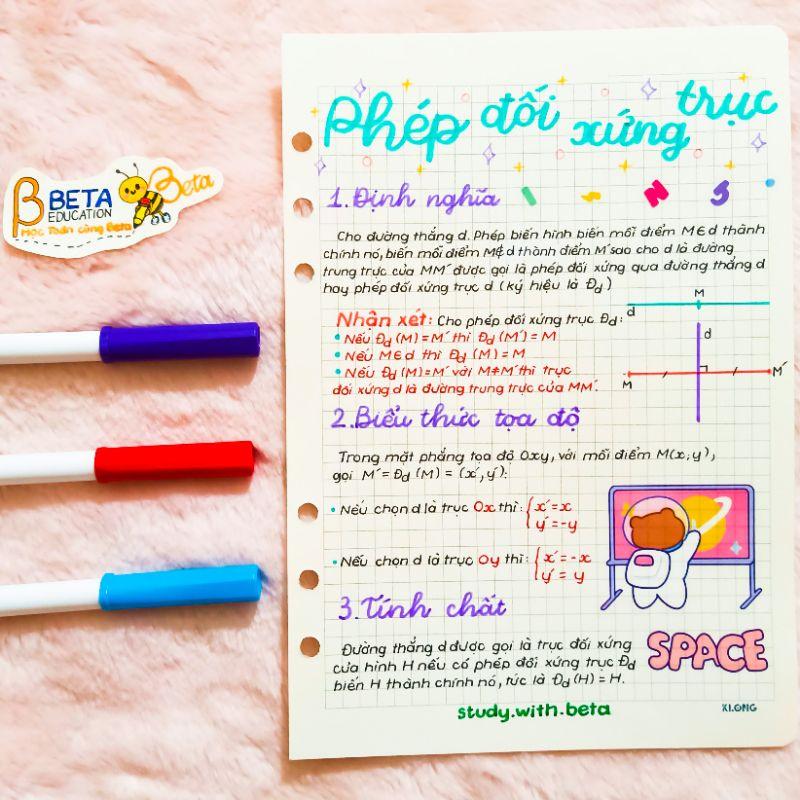 Phép đối xứng trục
β BETA
EDUCATION
Học Toán cùng Beta
Beta
1. Định nghĩa
Cho đường thẳng d. Phép biến hình biến mỗi điểm M∈d thành
chính nó, biến mỗi điểm M∉d thành điểm M' sao cho d là đường
trung trực của MM' được gọi là phép đối xứng qua đường thẳng d
hay phép đối xứng trục d (ký hiệu là Đd)
Nhận xét: Cho phép đối xứng trục Đd:
• Nếu Đd (M) = M' thì Đd (M') = M
• Nếu M∈d thì Đd (M) = M
• Nếu Đd (M) = M' với M≠M' thì trục
đối xứng d là đường trung trực của MM'.
M
d
d
M
M'
2. Biểu thức tọa độ
Trong mặt phẳng tọa độ Oxy, với mỗi điểm M(x;y),
gọi M' = Đd (M) = (x',y'):
• Nếu chọn d là trục Ox thì: { x' = x
y' = -y
• Nếu chọn d là trục Oy thì: { x' = -x
y' = y
3. Tính chất
Đường thẳng d được gọi là trục đối xứng
của hình H nếu có phép đối xứng trục Đd
biến H thành chính nó, tức là Đd (H) = H.
SPACE
study.with.beta
XI.ONG